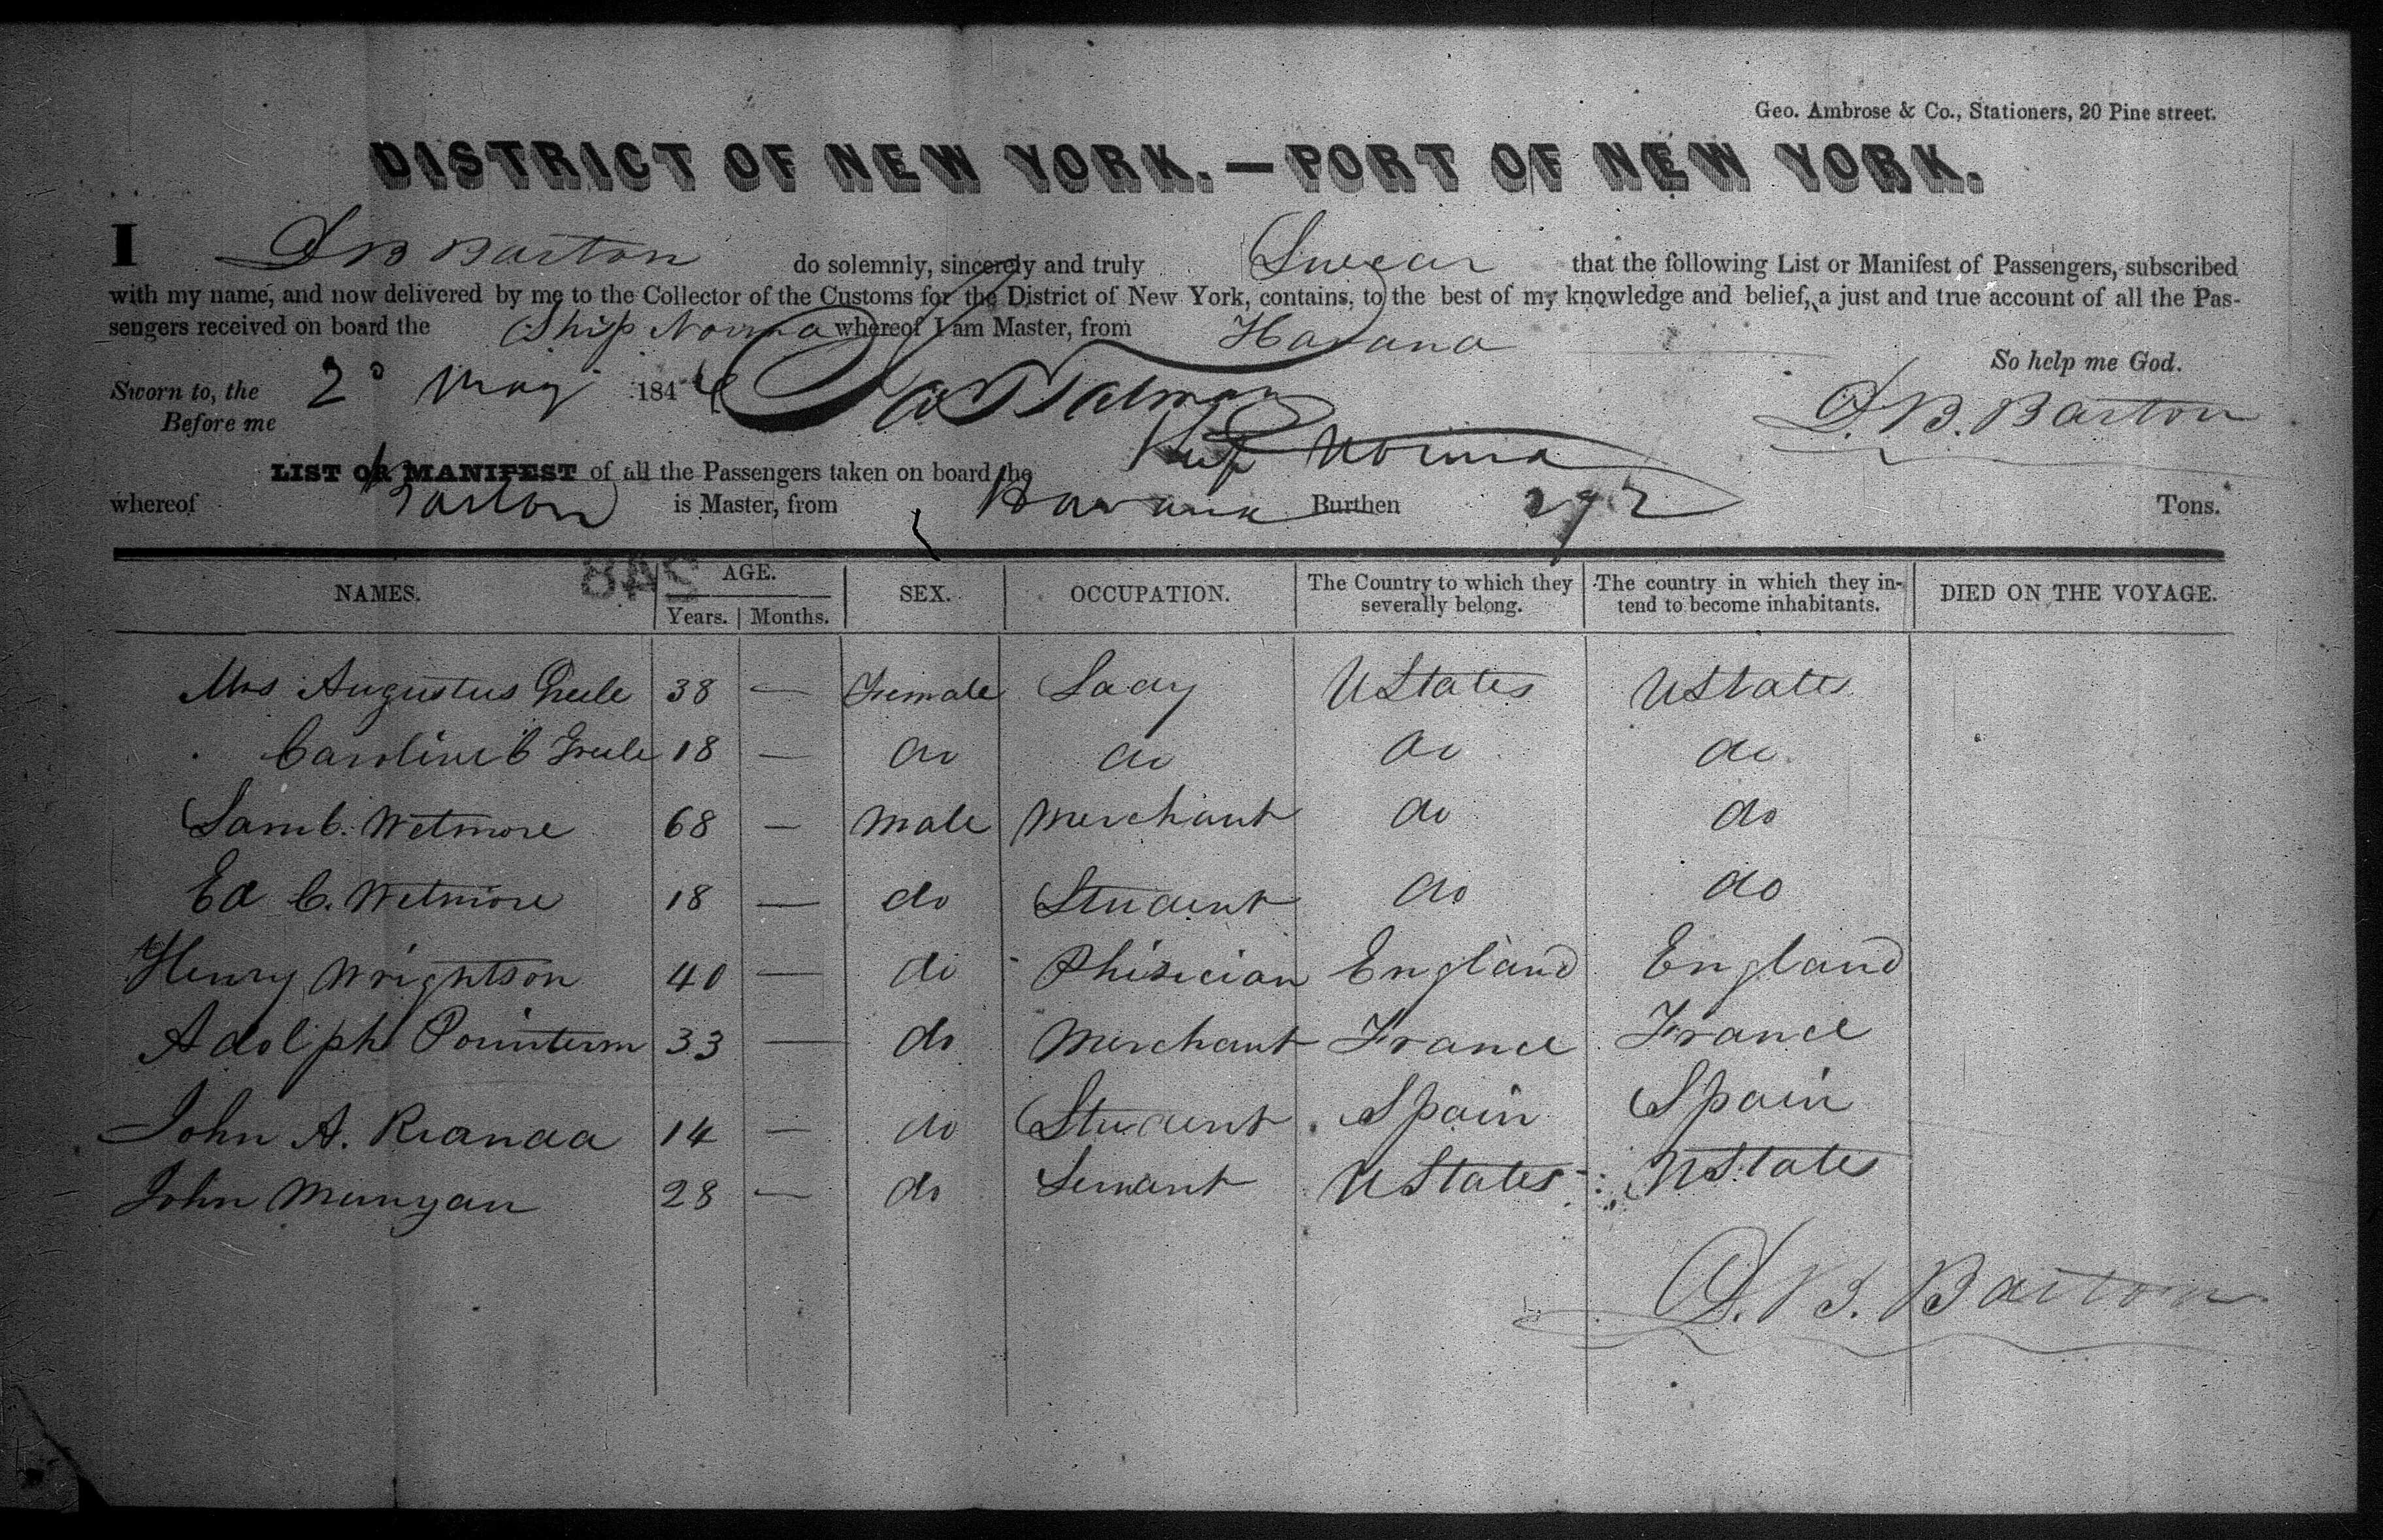 Geo. Ambrose & Co., Stationers, 20 Pine street.
DISTRICT OF NEW YORK.—PORT OF NEW YORK.
I D B Barton do solemnly, sincerely and truly Swear that the following List or Manifest of Passengers, subscribed
with my name, and now delivered by me to the Collector of the Customs for the District of New York, contains, to the best of my knowledge and belief, a just and true account of all the Pas-
sengers received on board the Ship Norma whereof I am Master, from Havana
So help me God.
Sworn to, the 2 May 184
Before me
D. B. Barton
LIST OR MANIFEST of all the Passengers taken on board the Ship Norma
whereof Barton is Master, from Havana Burthen Tons.
NAMES. AGE. SEX. OCCUPATION. The Country to which they severally belong. The country in which they in-tend to become inhabitants. DIED ON THE VOYAGE.
Years. Months.
Mrs Augustus 38 — Female Lady UStates UStates
Caroline C 18 — do do do do
Saml. Wetmore 68 — Male Merchant do do
Ed C. Wetmore 18 — do Student do do
Henry Wrightson 40 — do Phisician England England
Adolph 33 — do Merchant France France
John A. 14 — do Student Spain Spain
John Munyan 28 — do Servant UStates UStates
D. B. Barton